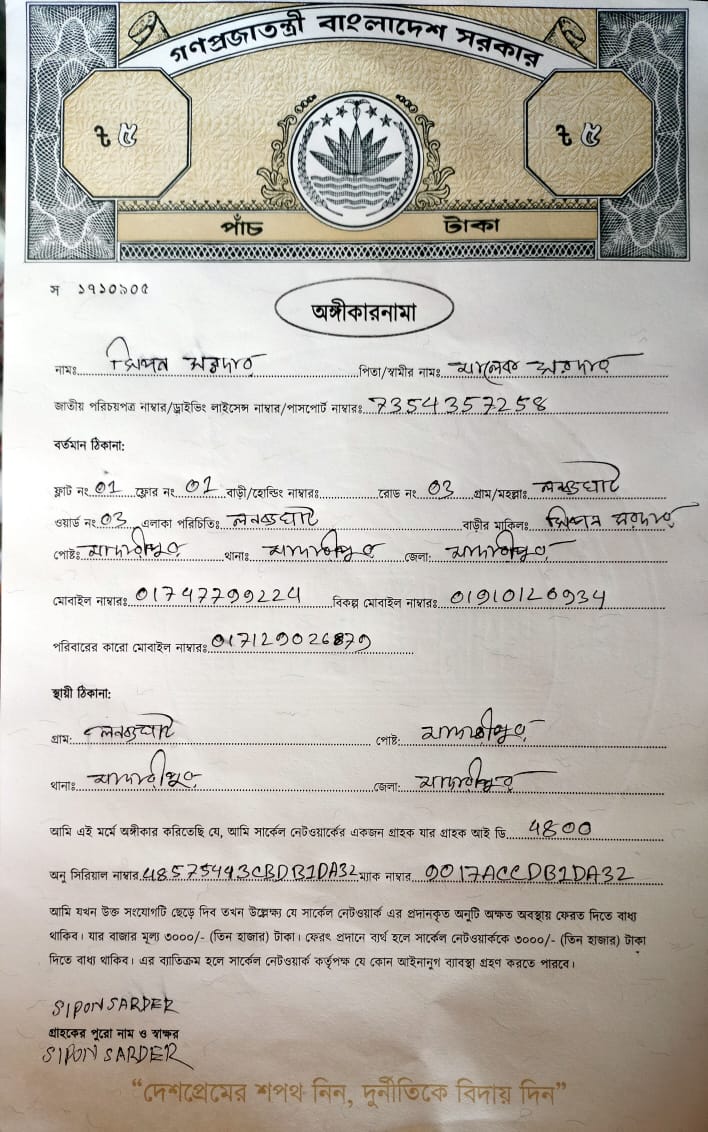 গণপ্রজাতন্ত্রী বাংলাদেশ সরকার
৳ ৫ ৳ ৫
পাঁচ টাকা
স ১৭১০৯০৫
অঙ্গীকারনামা
নামঃ সিপন সরদার পিতা/স্বামীর নামঃ মালেক সরদার
জাতীয় পরিচয়পত্র নাম্বার/ড্রাইভিং লাইসেন্স নাম্বার/পাসপোর্ট নাম্বারঃ 7354357258
বর্তমান ঠিকানা:
ফ্লাট নং 01 ফ্লোর নং 01 বাড়ী/হোল্ডিং নাম্বারঃ রোড নং 03 গ্রাম/মহল্লাঃ লঞ্চঘাট
ওয়ার্ড নং 03 এলাকা পরিচিতিঃ লঞ্চঘাট বাড়ীর মালিকঃ সিপন সরদার
পোষ্টঃ মাদারীপুর থানাঃ মাদারীপুর জেলা: মাদারীপুর
মোবাইল নাম্বারঃ 01747799224 বিকল্প মোবাইল নাম্বারঃ 01910126934
পরিবারের কারো মোবাইল নাম্বারঃ 017129026879
স্থায়ী ঠিকানা:
গ্রাম: লঞ্চঘাট পোষ্ট: মাদারীপুর
থানাঃ মাদারীপুর জেলা: মাদারীপুর
আমি এই মর্মে অঙ্গীকার করিতেছি যে, আমি সার্কেল নেটওয়ার্কের একজন গ্রাহক যার গ্রাহক আই ডি 4800
অনু সিরিয়াল নাম্বার 48575443CBDB1DA32 ম্যাক নাম্বার 9017ACCDB1DA32
আমি যখন উক্ত সংযোগটি ছেড়ে দিব তখন উল্লেক্ষ্য যে সার্কেল নেটওয়ার্ক এর প্রদানকৃত অনুটি অক্ষত অবস্থায় ফেরত দিতে বাধ্য
থাকিব। যার বাজার মূল্য ৩০০০/- (তিন হাজার) টাকা। ফেরৎ প্রদানে ব্যর্থ হলে সার্কেল নেটওয়ার্ককে ৩০০০/- (তিন হাজার) টাকা
দিতে বাধ্য থাকিব। এর ব্যতিক্রম হলে সার্কেল নেটওয়ার্ক কর্তৃপক্ষ যে কোন আইনানুগ ব্যাবস্থা গ্রহণ করতে পারবে।
SIPON SARDER
গ্রাহকের পুরো নাম ও স্বাক্ষর
SIPON SARDER
“দেশপ্রেমের শপথ নিন, দুর্নীতিকে বিদায় দিন”